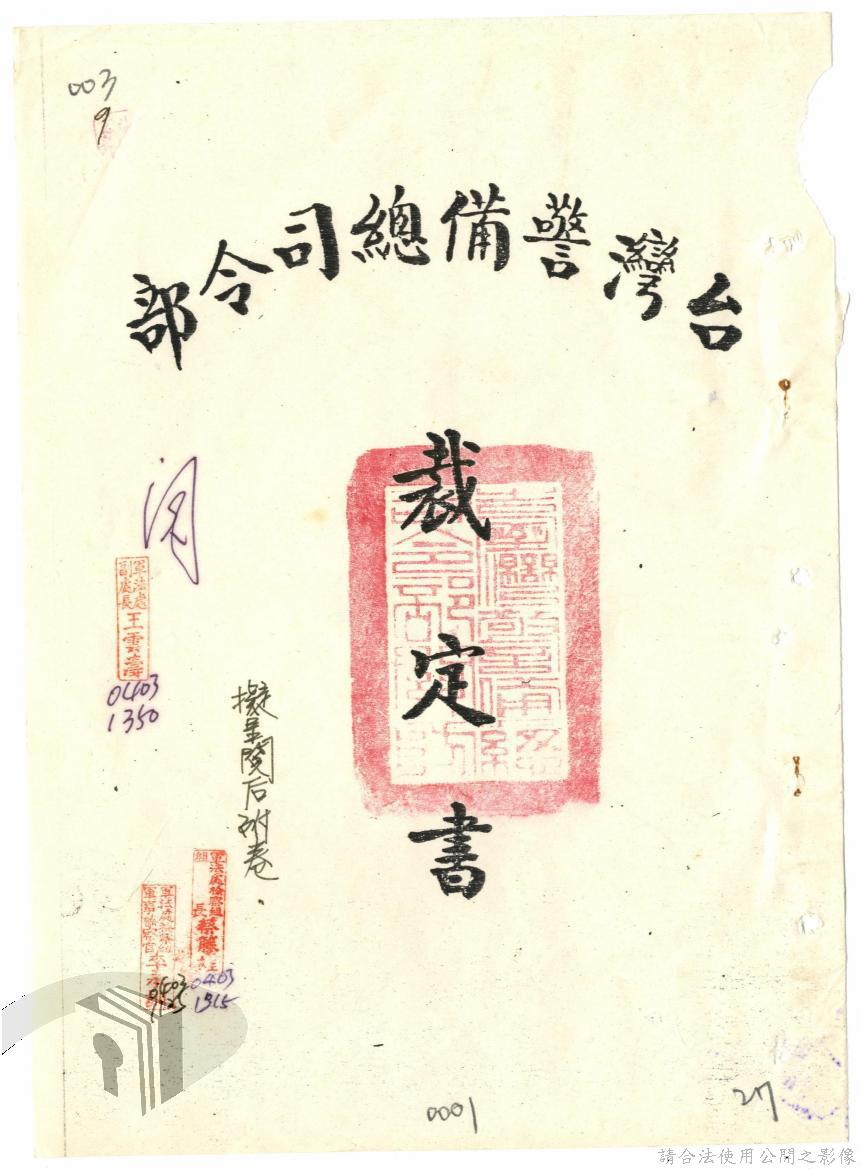 003
9
台灣警備總司令部
裁定書
閱
軍法處
副處長
王雲濤
0403
1350
擬呈閱后附卷.
軍法處檢察組
組長
蔡籐
0403
1315
0403
0001
27
請合法使用公開之影像